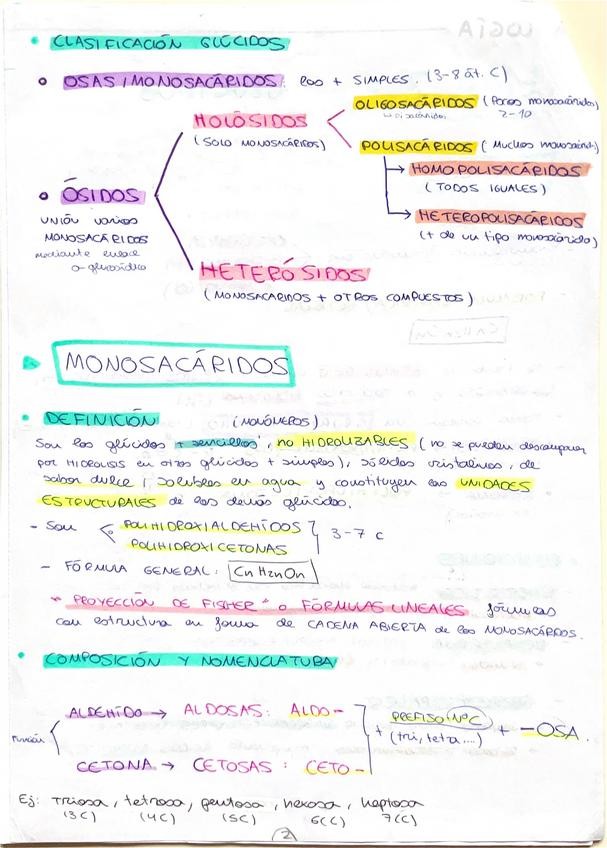 CLASIFICACIÓN GLÚCIDOS
OSAS / MONOSACÁRIDOS: los + SIMPLES. (3-8 át. C)
OLIGOSACÁRIDOS (Pocos monosacáridos)
2-10
HOLÓSIDOS
(SOLO MONOSACÁRIDOS)
POLISACÁRIDOS (Muchos monosacárid)
HOMOPOLISACÁRIDOS
(TODOS IGUALES)
ÓSIDOS
UNIÓN varios
MONOSACÁRIDOS
mediante enlace
o-glucosídico
HETEROPOLISACÁRIDOS
(+ de un tipo monosacárido)
HETERÓSIDOS
(MONOSACARIDOS + OTROS COMPUESTOS)
MONOSACÁRIDOS
DEFINICIÓN (MONÓMEROS)
Son los glúcidos + sencillos, no HIDROLIZABLES (no se pueden descomponer
por HIDROLISIS en otros glúcidos + simples), sólidos cristalinos, de
sabor dulce, solubles en agua y constituyen las UNIDADES
ESTRUCTURALES de los demás glúcidos.
- Son POLIHIDROXIALDEHÍDOS
POLIHIDROXICETONAS
3-7 C
- FÓRMULA GENERAL: CnH2nOn
"PROYECCIÓN DE FISHER" o FÓRMULAS LINEALES fórmulas
con estructura en forma de CADENA ABIERTA de los MONOSACÁRIDOS.
COMPOSICIÓN Y NOMENCLATURA
Función
ALDEHÍDO → ALDOSAS: ALDO-
CETONA → CETOSAS: CETO-
+ PREFIJO Nº C
(tri, tetra...)
+ -OSA.
Ej: Triosa, tetrosa, pentosa, hexosa, heptosa
(3C) (4C) (5C) 6(C) 7(C)
2